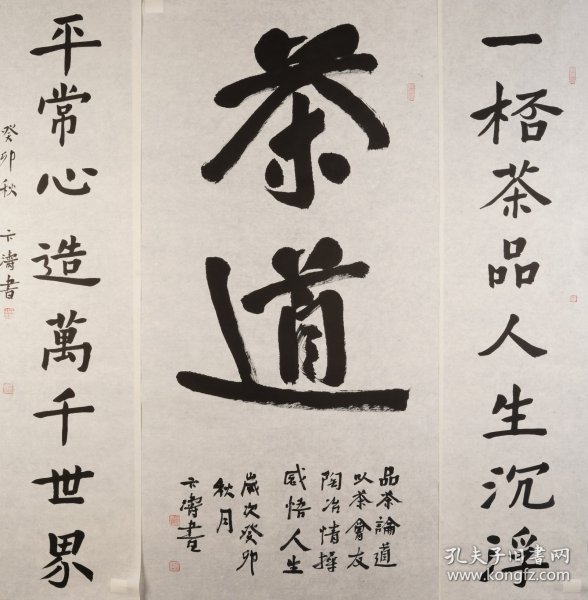 一桮茶品人生沉浮
茶道
品茶論道
以茶會友
陶冶情操
感悟人生
歲次癸卯
秋月
卞濤書
平常心造萬千世界
癸卯秋 卞濤書
孔夫子旧书网
www.kongfz.com